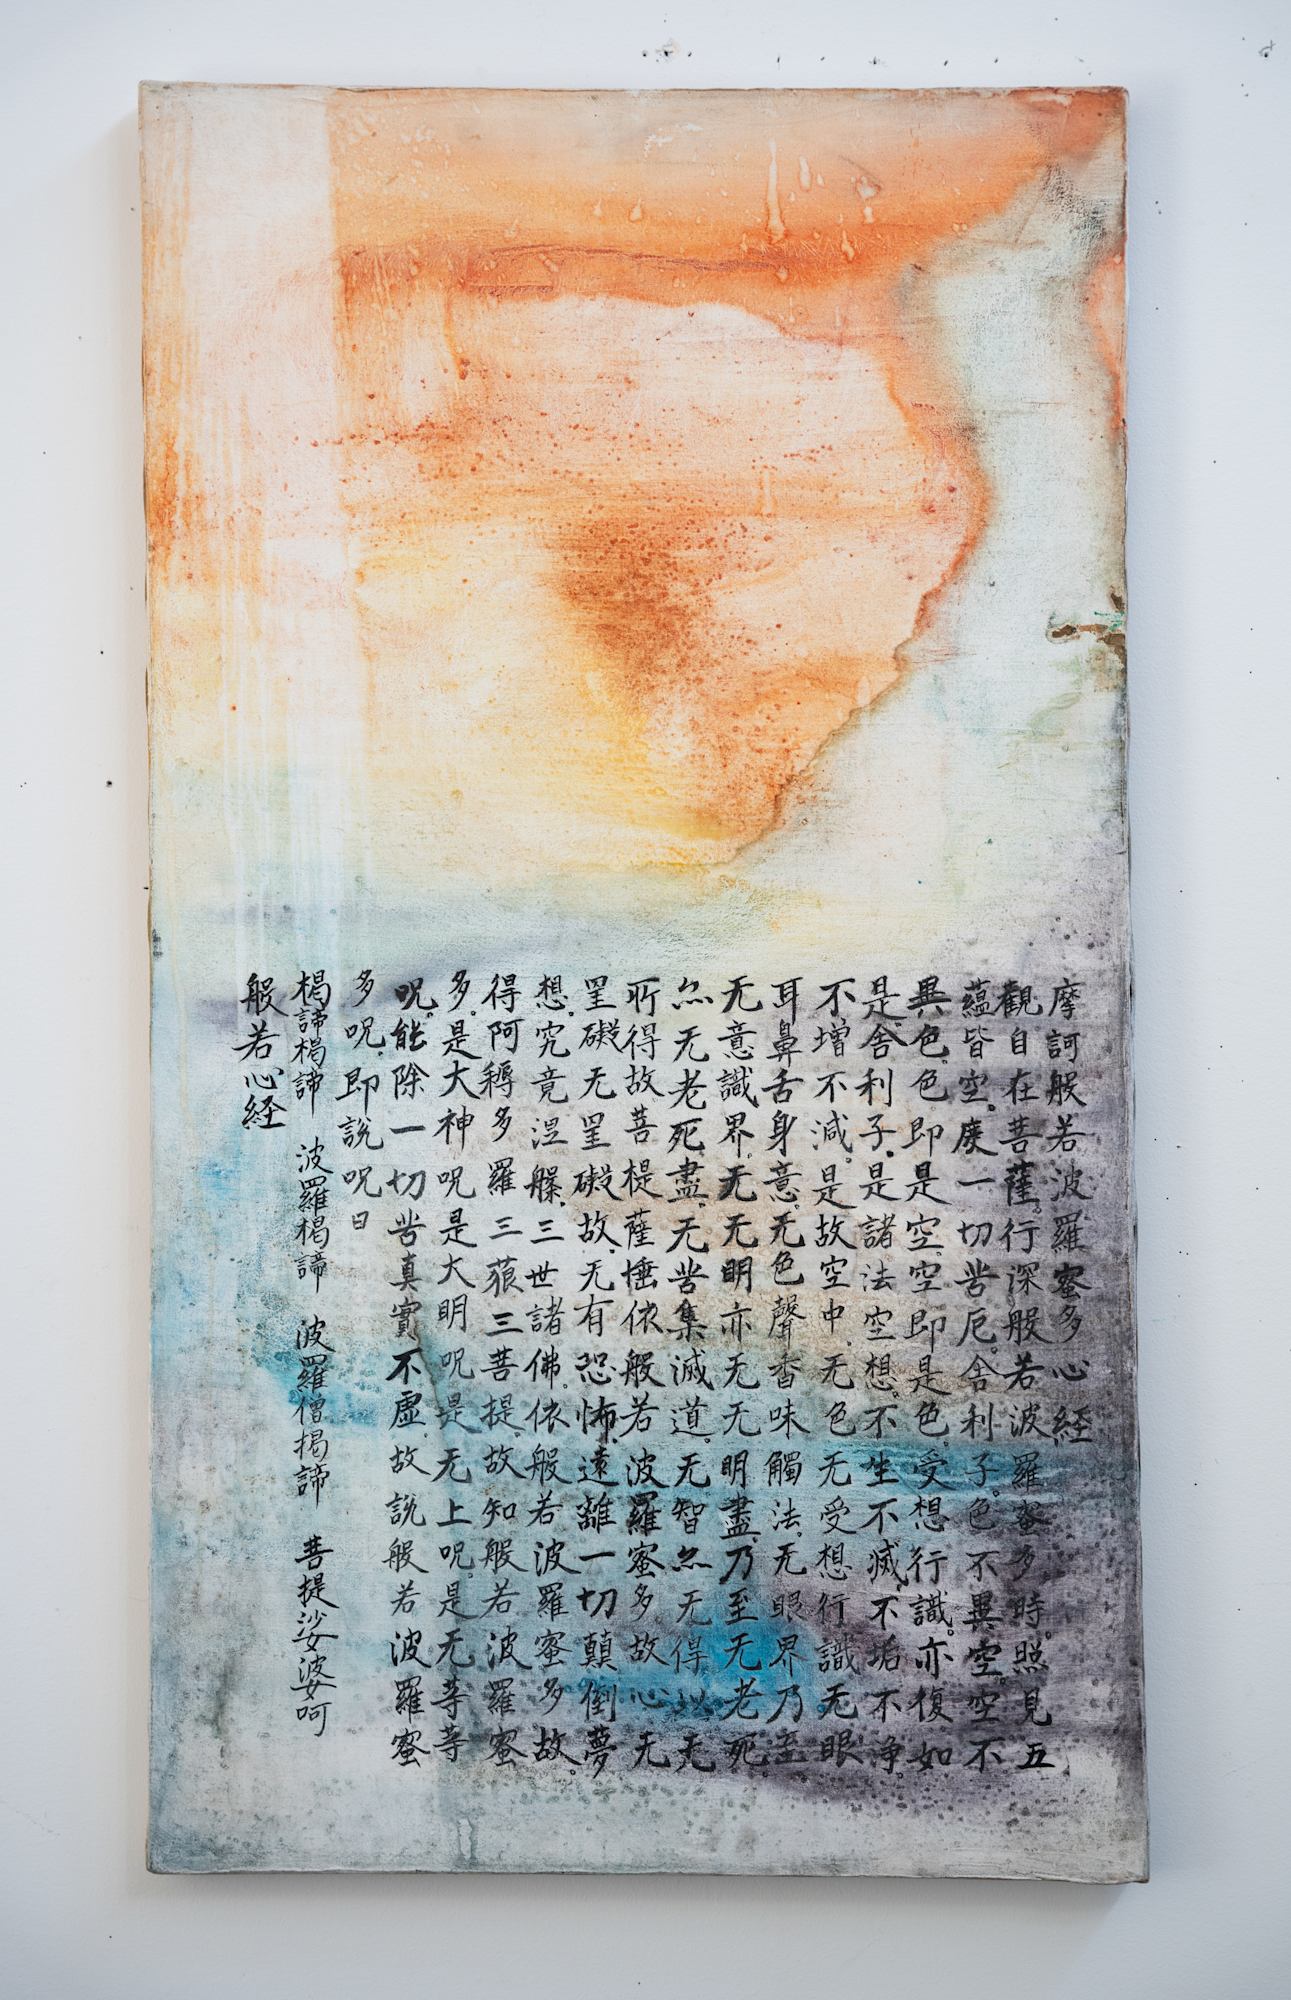 摩訶般若波羅蜜多心経
觀自在菩薩。行深般若波羅蜜多時。照見五
蘊皆空。度一切苦厄。舎利子。色不異空。空不
異色。色即是空。空即是色。受想行識。亦復如
是。舎利子。是諸法空想。不生不滅。不垢不浄。
不増不減。是故空中。无色无受想行識无眼
耳鼻舌身意。无色聲香味觸法。无眼界乃至
无意識界。无无明亦无无明盡。乃至无老死。
亦无老死盡。无苦集滅道。无智亦无得以无
所得故菩提薩埵依般若波羅蜜多故心无
罣礙无罣礙故。无有恐怖。遠離一切顛倒夢
想。究竟涅槃。三世諸佛。依般若波羅蜜多故。
得阿耨多羅三藐三菩提。故知般若波羅蜜
多。是大神呪是大明呪是无上呪。是无等等
呪。能除一切苦真實不虛。故説般若波羅蜜
多呪。即説呪曰
楬諦楬諦 波羅楬諦 波羅僧揭諦 菩提娑婆呵
般若心経